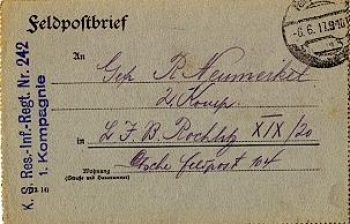 Feldpostbrief
-6.6.17.9-10
K. S. Res.-Inf.-Regt. Nr. 242
1. Kompagnie
An
Gefr R. Neumerkel
2. Komp.
L. J. B. Rochlitz XIX/20
Dtsche Feldpost 104
Wohnung
(Straße und Hausnummer)